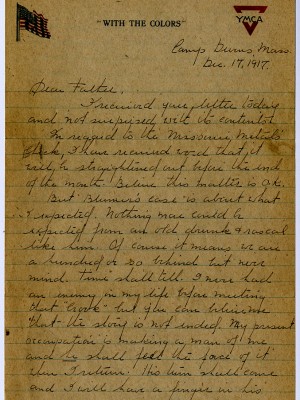 "WITH THE COLORS"
YMCA
Camp Devens, Mass.
Dec. 17, 1917.
Dear Father,
I received your letter today
and not surprised with its contents.
In regard to the Missouri,
check, I have received word that it
will be straightened out before the end
of the month. Believe this matter is O.K.
But case is about what
I expected. Nothing more could be
expected from an old drunk & rascal
like him. Of course it means we are
a hundred or so behind but never
mind. Time shall tell. I never had
an enemy in my life before meeting
that but you can believe me
that the story is not ended. My present
occupation is making a man of me
and he shall feel the force of it
when I return. His turn shall come
and I will have a finger in his